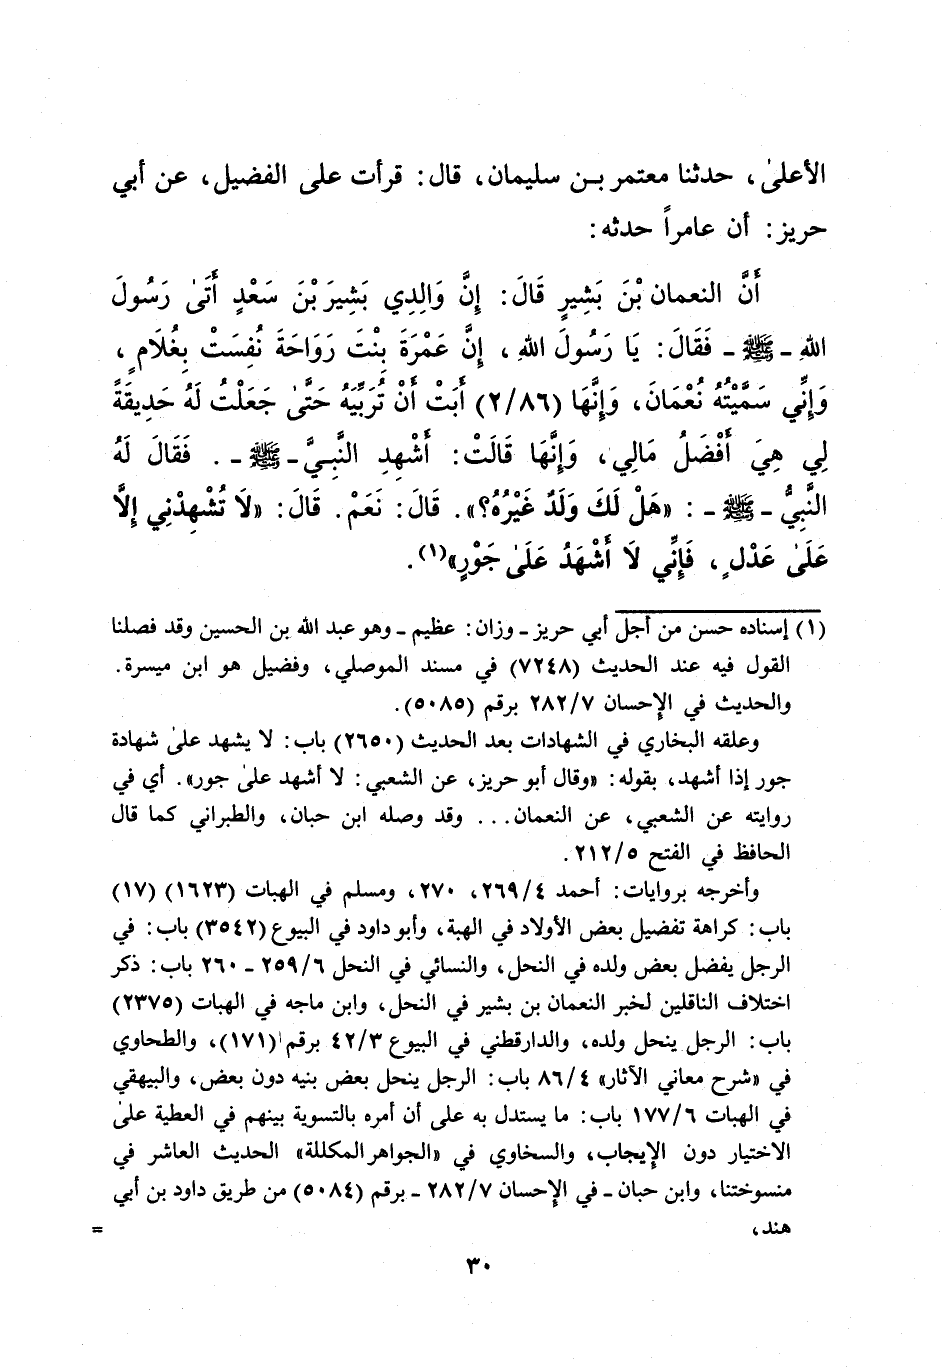 الأعلىٰ، حدثنا معتمر بـن سليمان، قال: قرأت على الفضيل، عن أبي
حريز: أن عامراً حدثه:
أَنَّ النعمان بْنَ بَشِيرٍ قَالَ: إِنَّ وَالِدِي بَشِيرَ بْنَ سَعْدٍ أَتَىٰ رَسُولَ
اللهِ ـ ﷺ ـ فَقَالَ: يَا رَسُولَ اللهِ، إِنَّ عَمْرَةَ بِنْتَ رَوَاحَةَ نُفِسَتْ بِغُلَامٍ،
وَإِنِّي سَمَّيْتُهُ نُعْمَانَ، وَإِنَّهَا (٢/٨٦) أَبَتْ أَنْ تُرَبِّيَهُ حَتَّىٰ جَعَلْتُ لَهُ حَدِيقَةً
لِي هِيَ أَفْضَلُ مَالِي، وَإِنَّهَا قَالَتْ: أَشْهِدِ النَّبِيَّ ـ ﷺ ـ. فَقَالَ لَهُ
النَّبِيُّ ـ ﷺ ـ: «هَلْ لَكَ وَلَدٌ غَيْرُهُ؟». قَالَ: نَعَمْ. قَالَ: «لَا تُشْهِدْنِي إِلَّا
عَلَىٰ عَدْلٍ، فَإِنِّي لَا أَشْهَدُ عَلَىٰ جَوْرٍ»(١).
(١) إسناده حسن من أجل أبي حريز ـ وزان: عظيم ـ وهو عبد الله بن الحسين وقد فصلنا
القول فيه عند الحديث (٧٢٤٨) في مسند الموصلي، وفضيل هو ابن ميسرة.
والحديث في الإحسان ٢٨٢/٧ برقم (٥٠٨٥).
وعلقه البخاري في الشهادات بعد الحديث (٢٦٥٠) باب: لا يشهد علىٰ شهادة
جور إذا أشهد، بقوله: «وقال أبو حريز، عن الشعبي: لا أشهد علىٰ جور». أي في
روايته عن الشعبي، عن النعمان... وقد وصله ابن حبان، والطبراني كما قال
الحافظ في الفتح ٢١٢/٥.
وأخرجه بروايات: أحمد ٢٦٩/٤، ٢٧٠، ومسلم في الهبات (١٦٢٣) (١٧)
باب: كراهة تفضيل بعض الأولاد في الهبة، وأبو داود في البيوع (٣٥٤٢) باب: في
الرجل يفضل بعض ولده في النحل، والنسائي في النحل ٢٥٩/٦ ـ ٢٦٠ باب: ذكر
اختلاف الناقلين لخبر النعمان بن بشير في النحل، وابن ماجه في الهبات (٢٣٧٥)
باب: الرجل ينحل ولده، والدارقطني في البيوع ٤٢/٣ برقم (١٧١)، والطحاوي
في «شرح معاني الآثار» ٨٦/٤ باب: الرجل ينحل بعض بنيه دون بعض، والبيهقي
في الهبات ١٧٧/٦ باب: ما يستدل به على أن أمره بالتسوية بينهم في العطية علىٰ
الاختيار دون الإيجاب، والسخاوي في «الجواهر المكللة» الحديث العاشر في
منسوختنا، وابن حبان ـ في الإحسان ٢٨٢/٧ ـ برقم (٥٠٨٤) من طريق داود بن أبي
هند، =
٣٠